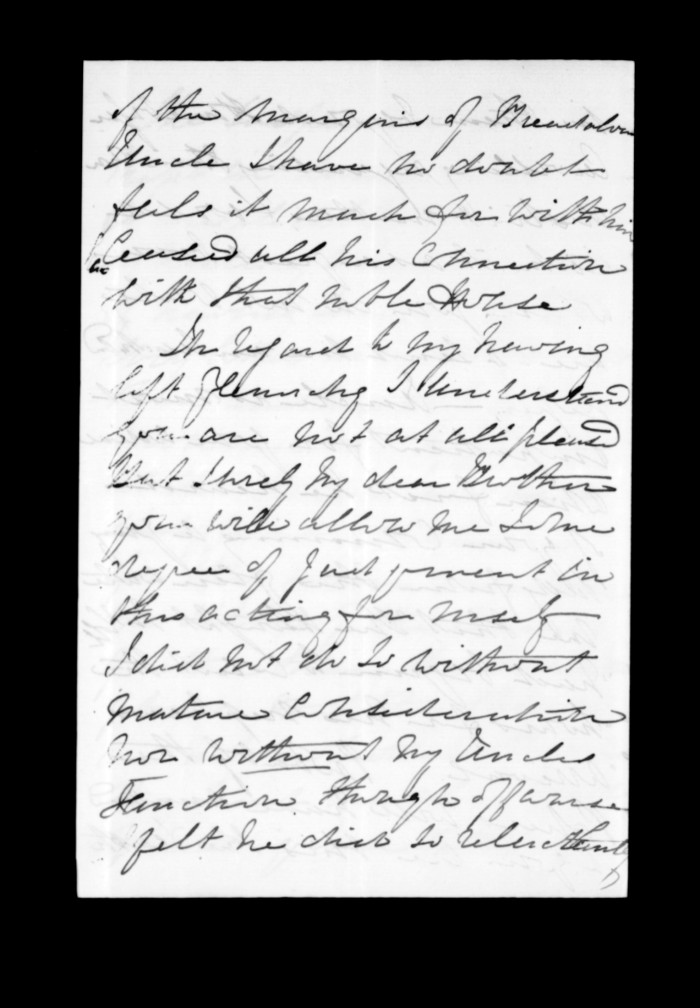 of the Marquis of Breadalbane
Uncle I have no doubt
feels it much for with him
has Ceased all his Connection
with that noble House
In regard to my having
left I understand
you are not at all pleased
But surely my dear Brother
you will allow me Some
degree of Judgment in
thus acting for mself
I did not do so without
mature Consideration
nor without my Uncles
Sanction though of course
I felt he did so reluctantly